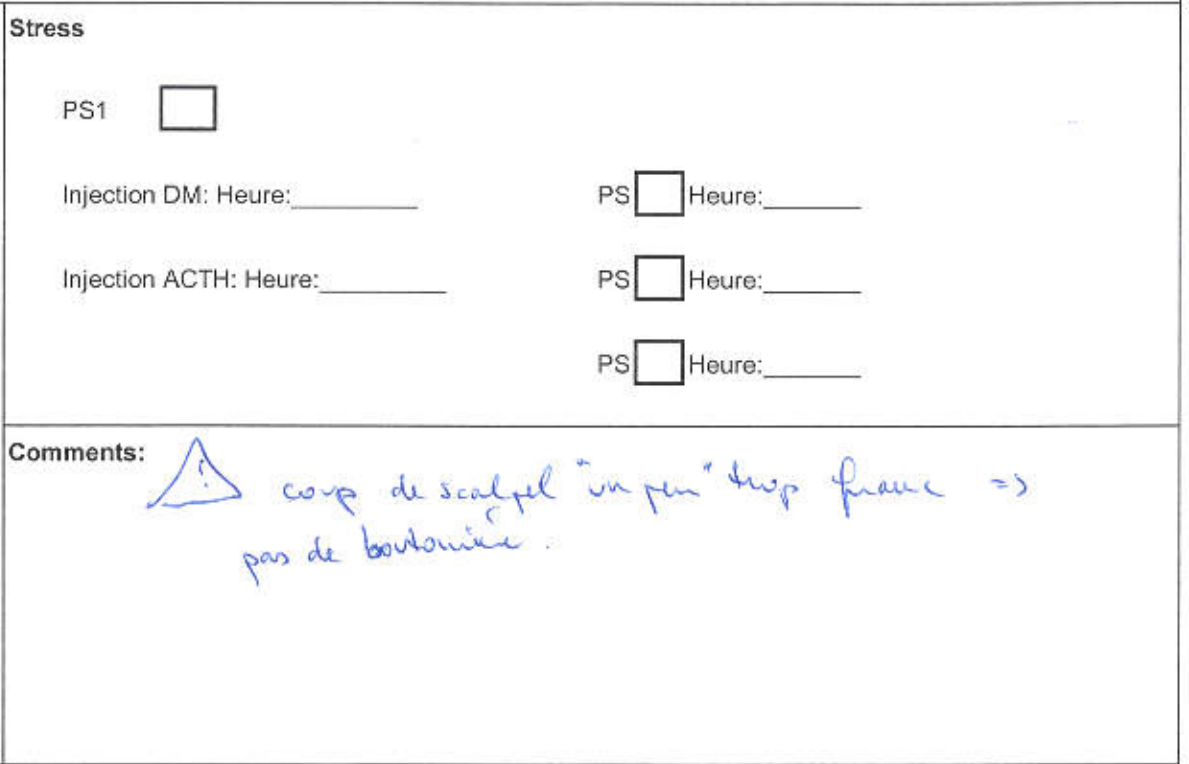 Stress
PS1
Injection DM: Heure:_________ PS Heure:_______
Injection ACTH: Heure:_________ PS Heure:_______
PS Heure:_______
Comments: ! coup de scalpel "un peu" trop franc =>
pas de boutonnière.